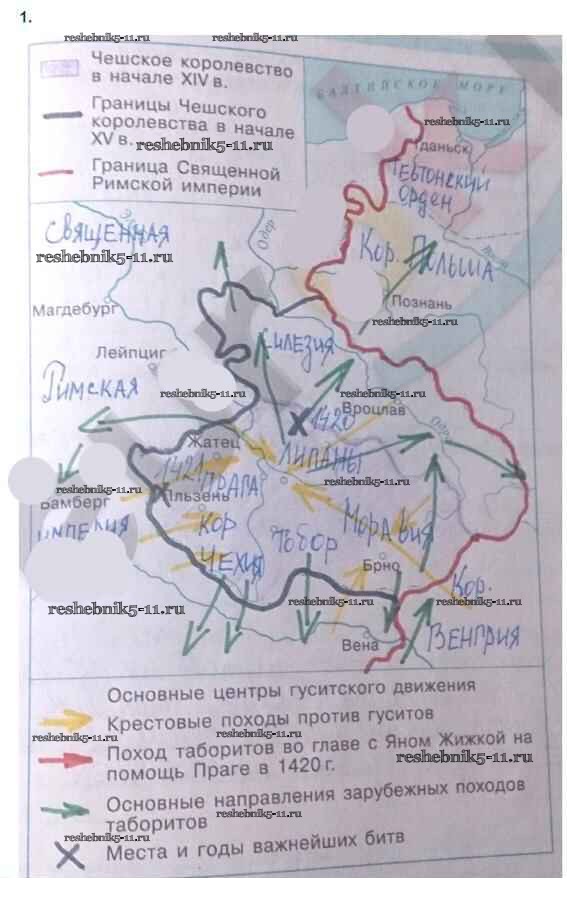 1.
reshebnik5-11.ru
reshebnik5-11.ru
Чешское королевство
в начале XIV в.
Границы Чешского
королевства в начале
XV в.
reshebnik5-11.ru
Граница Священной
Римской империи
БАЛТИЙСКОЕ МОРЕ
reshebnik5-11.ru
Гданьск
ТЕВТОНСКИЙ
ОРДЕН
СВЯЩЕННАЯ
reshebnik5-11.ru
Одер
Кор. Польша
Магдебург
Познань
reshebnik5-11.ru
Силезия
Лейпциг
Римская
reshebnik5-11.ru
reshebnik5-11.ru
1420
Вроцлав
Одер
Жатец
Липаны
1421
Прага
reshebnik5-11.ru
reshebnik5-11.ru
Бамберг
Пльзень
империя
Кор
Чехия
Табор
Моравия
Брно
Кор.
reshebnik5-11.ru
reshebnik5-11.ru
reshebnik5-11.ru
Вена
Венгрия
Основные центры гуситского движения
Крестовые походы против гуситов
reshebnik5-11.ru
reshebnik5-11.ru
Поход таборитов во главе с Яном Жижкой на
помощь Праге в 1420 г.
reshebnik5-11.ru
Основные направления зарубежных походов
таборитов
reshebnik5-11.ru
reshebnik5-11.ru
Места и годы важнейших битв